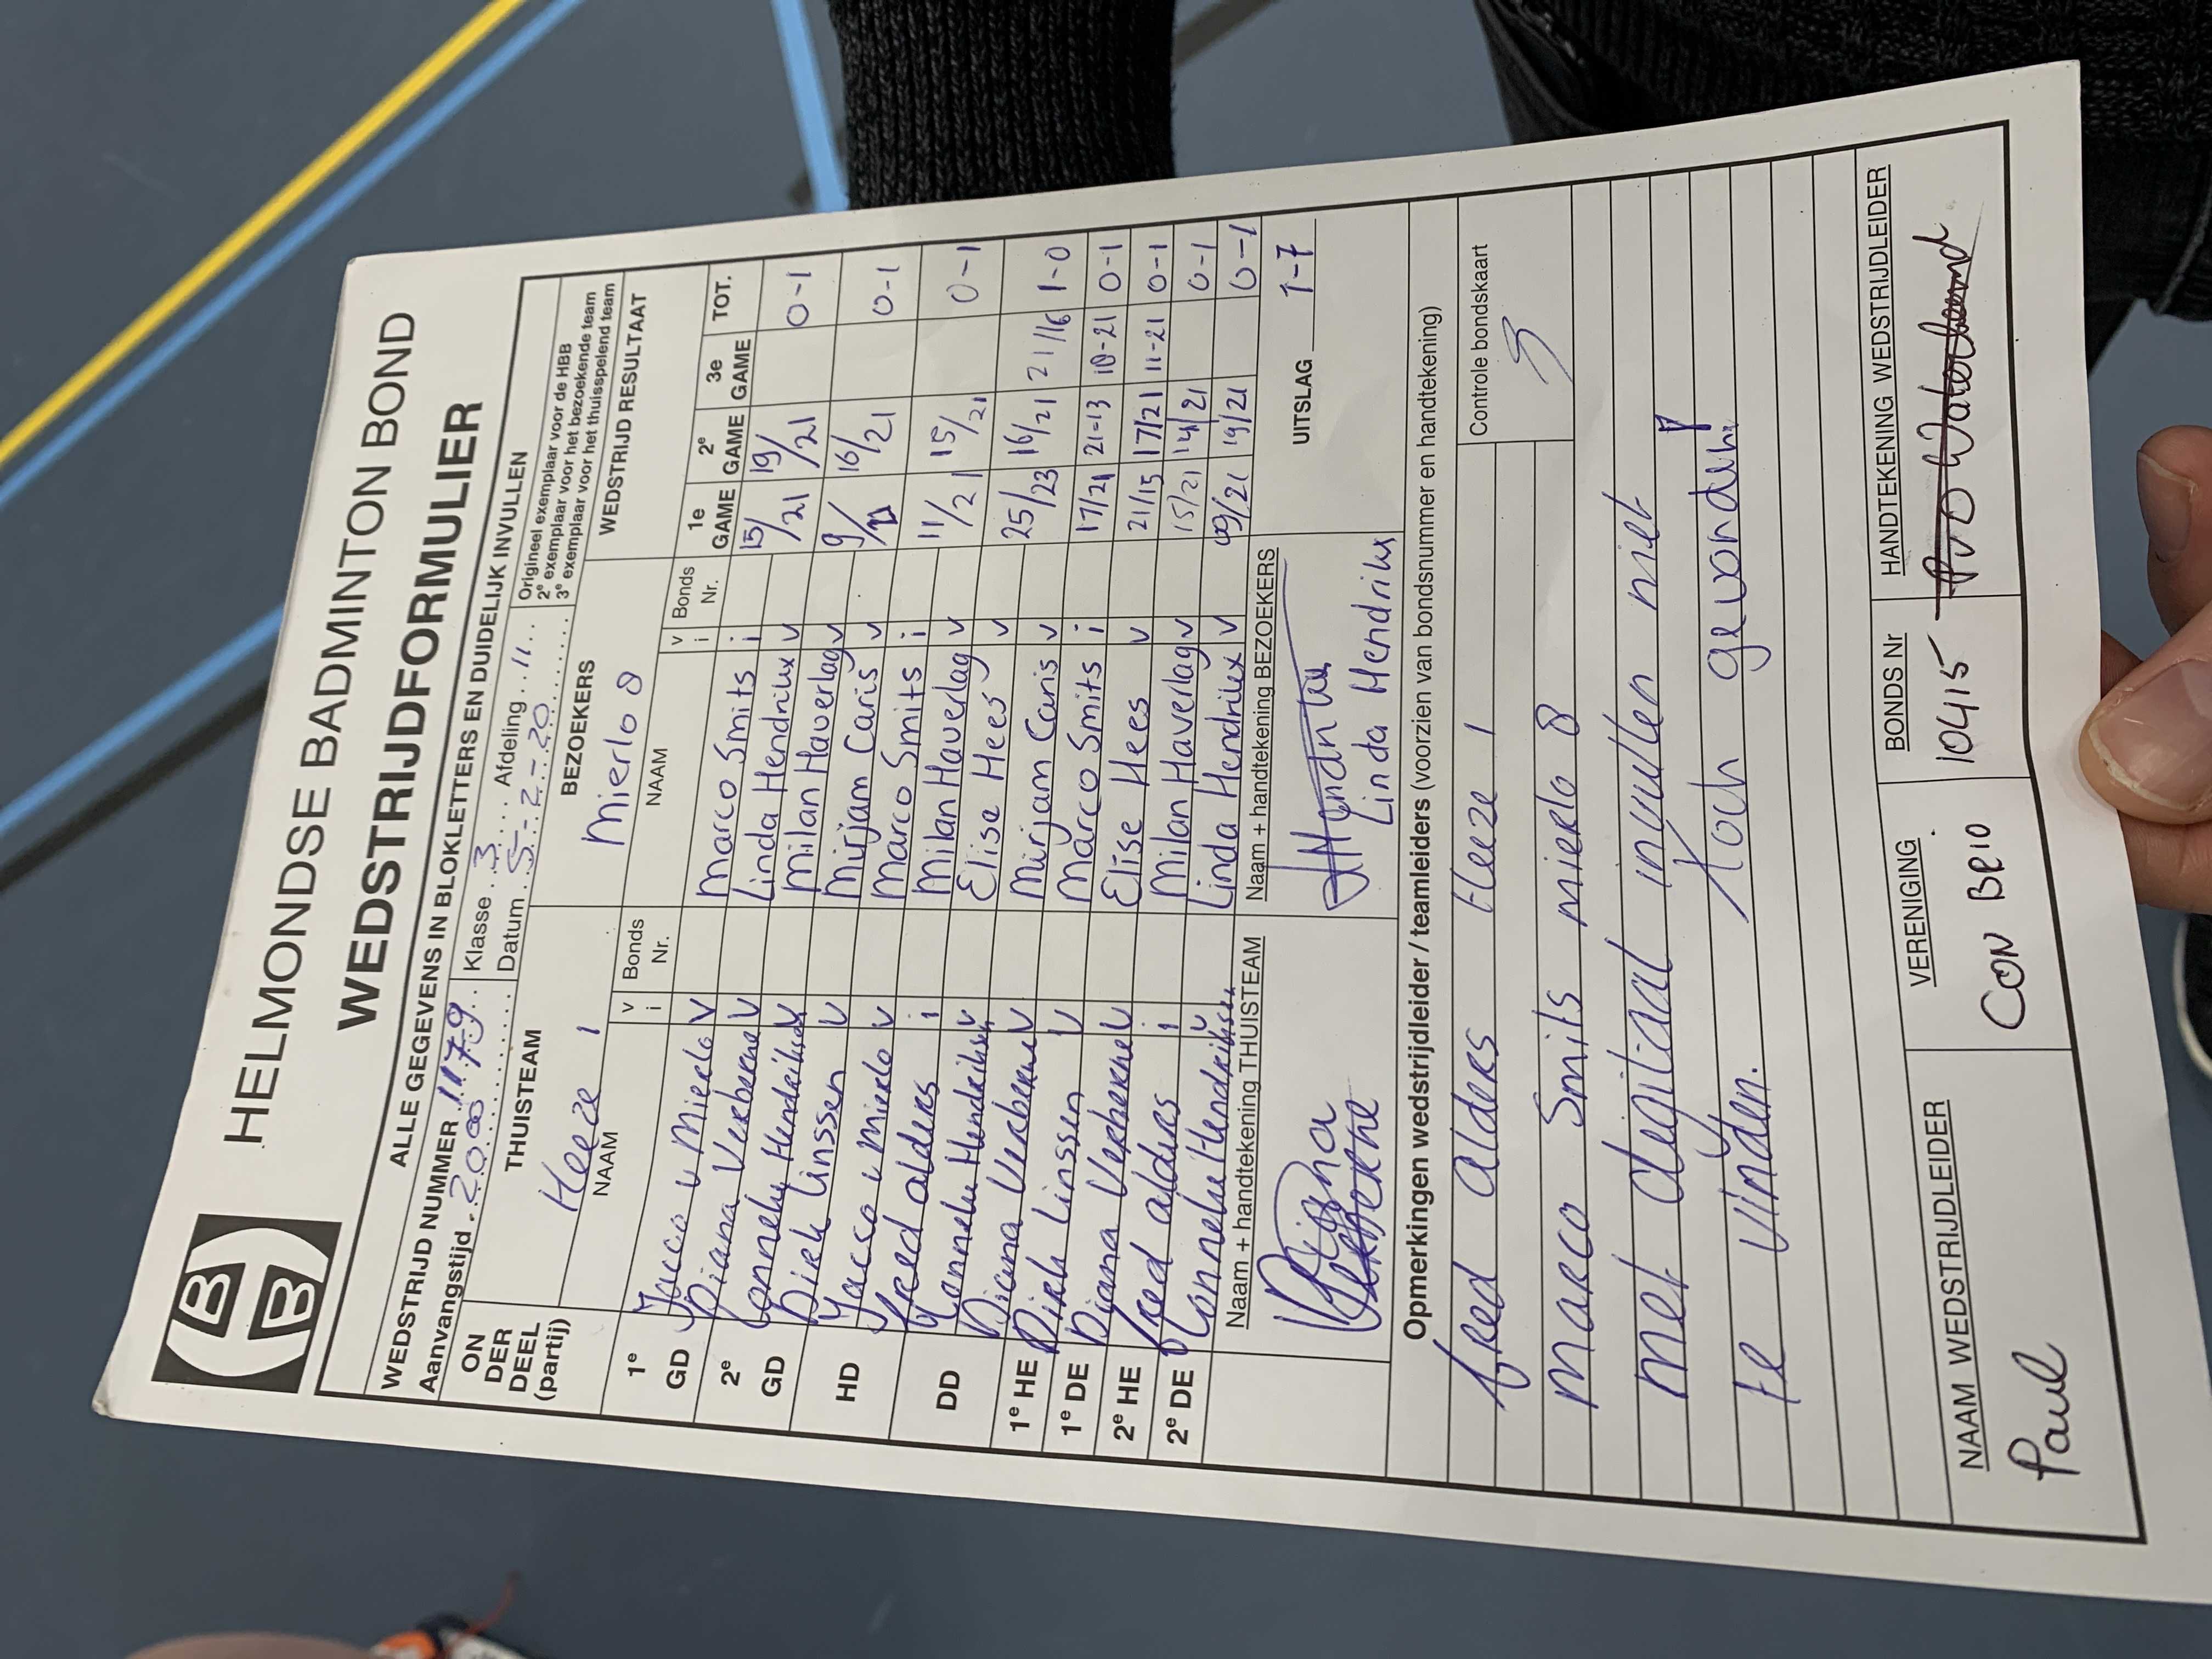 HBB
HELMONDSE BADMINTON BOND
WEDSTRIJDFORMULIER
ALLE GEGEVENS IN BLOKLETTERS EN DUIDELIJK INVULLEN
WEDSTRIJD NUMMER 11179 Klasse 3 Afdeling 11
Aanvangstijd 20.00 Datum 5-2-20
Origineel exemplaar voor de HBB
2e exemplaar voor het bezoekende team
3e exemplaar voor het thuisspelend team
ON DER DEEL (partij) THUISTEAM BEZOEKERS WEDSTRIJD RESULTAAT
Heeze 1 Mierlo 8
NAAM v i Bonds Nr. NAAM v i Bonds Nr. 1e GAME 2e GAME 3e GAME TOT.
1e GD Jacco v Mierlo V Marco Smits i 15/21 19/21 0-1
Diana Verberne V Linda Hendrikx V
2e GD Connelie Hendriksen V Milan Haverlag V 9/21 16/21 0-1
Dirk Linssen V Mirjam Caris V
HD Jacco v Mierlo V Marco Smits i 11/21 15/21 0-1
Fred alders i Milan Haverlag V
DD Connelie Hendriksen V Elise Hees V 25/23 16/21 21/16 1-0
Diana Verberne V Mirjam Caris V
1e HE Dirk Linssen V Marco Smits i 17/21 21-13 18-21 0-1
1e DE Diana Verberne V Elise Hees V 21/15 17/21 11-21 0-1
2e HE Fred alders i Milan Haverlag V 15/21 14/21 0-1
2e DE Connelie Hendriksen V Linda Hendrikx V 09/21 19/21 0-1
Naam + handtekening THUISTEAM Naam + handtekening BEZOEKERS
Diana Verberne Linda Hendrikx UITSLAG 1-7
Opmerkingen wedstrijdleider / teamleiders (voorzien van bondsnummer en handtekening)
Controle bondskaart
fred alders Heeze 1
marco Smits mierlo 8
met digitaal invullen niet
te vinden. Toch gevonden!
NAAM WEDSTRIJDLEIDER VERENIGING BONDS Nr HANDTEKENING WEDSTRIJDLEIDER
Paul CON BRIO 10415